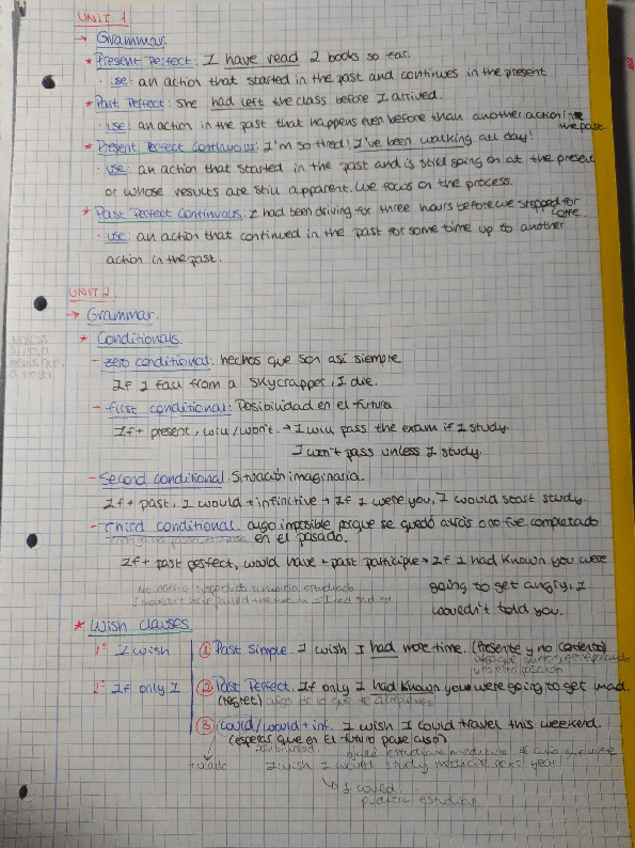 UNIT 1
→ Grammar.
* Present Perfect: I have read 2 books so far.
· use: an action that started in the past and continues in the present.
* Past Perfect: she had left the class before I arrived.
· use: an action in the past that happens even before than another action in
the past.
* Present Perfect Continuous: I'm so tired! I've been walking all day!
· use: an action that started in the past and is still going on at the present
or whose results are still apparent. We focus on the process.
* Past Perfect Continuous: I had been driving for three hours before we stopped for
coffe.
· use: an action that continued in the past for some time up to another
action in the past.
UNIT 2
→ Grammar.
* Conditionals.
unless
- zero conditional: hechos que son así siempre
If I fall from a skycrapper, I die.
- first conditional: Posibilidad en el futuro
If + present, will/won't. → I will pass the exam if I study.
I won't pass unless I study.
- Second conditional. Situación imaginaria.
If + past, I would + infinitive → If I were you, I would start study.
- third conditional. algo imposible porque se quedó atrás o no fue completado
en el pasado.
If + past perfect, would have + past participle → If I had known you were
going to get angry, I
wouldn't told you.
* Wish clauses
1º I wish
① Past simple. I wish I had more time. (Presente y no contento)
2º If only I
② Past Perfect. If only I had known you were going to get mad.
(regret)
③ could/would + inf. I wish I could travel this weekend.
(esperar que en el futuro pase algo)
I wish I would study medicine next year
↳ I could
pudiera estudiar